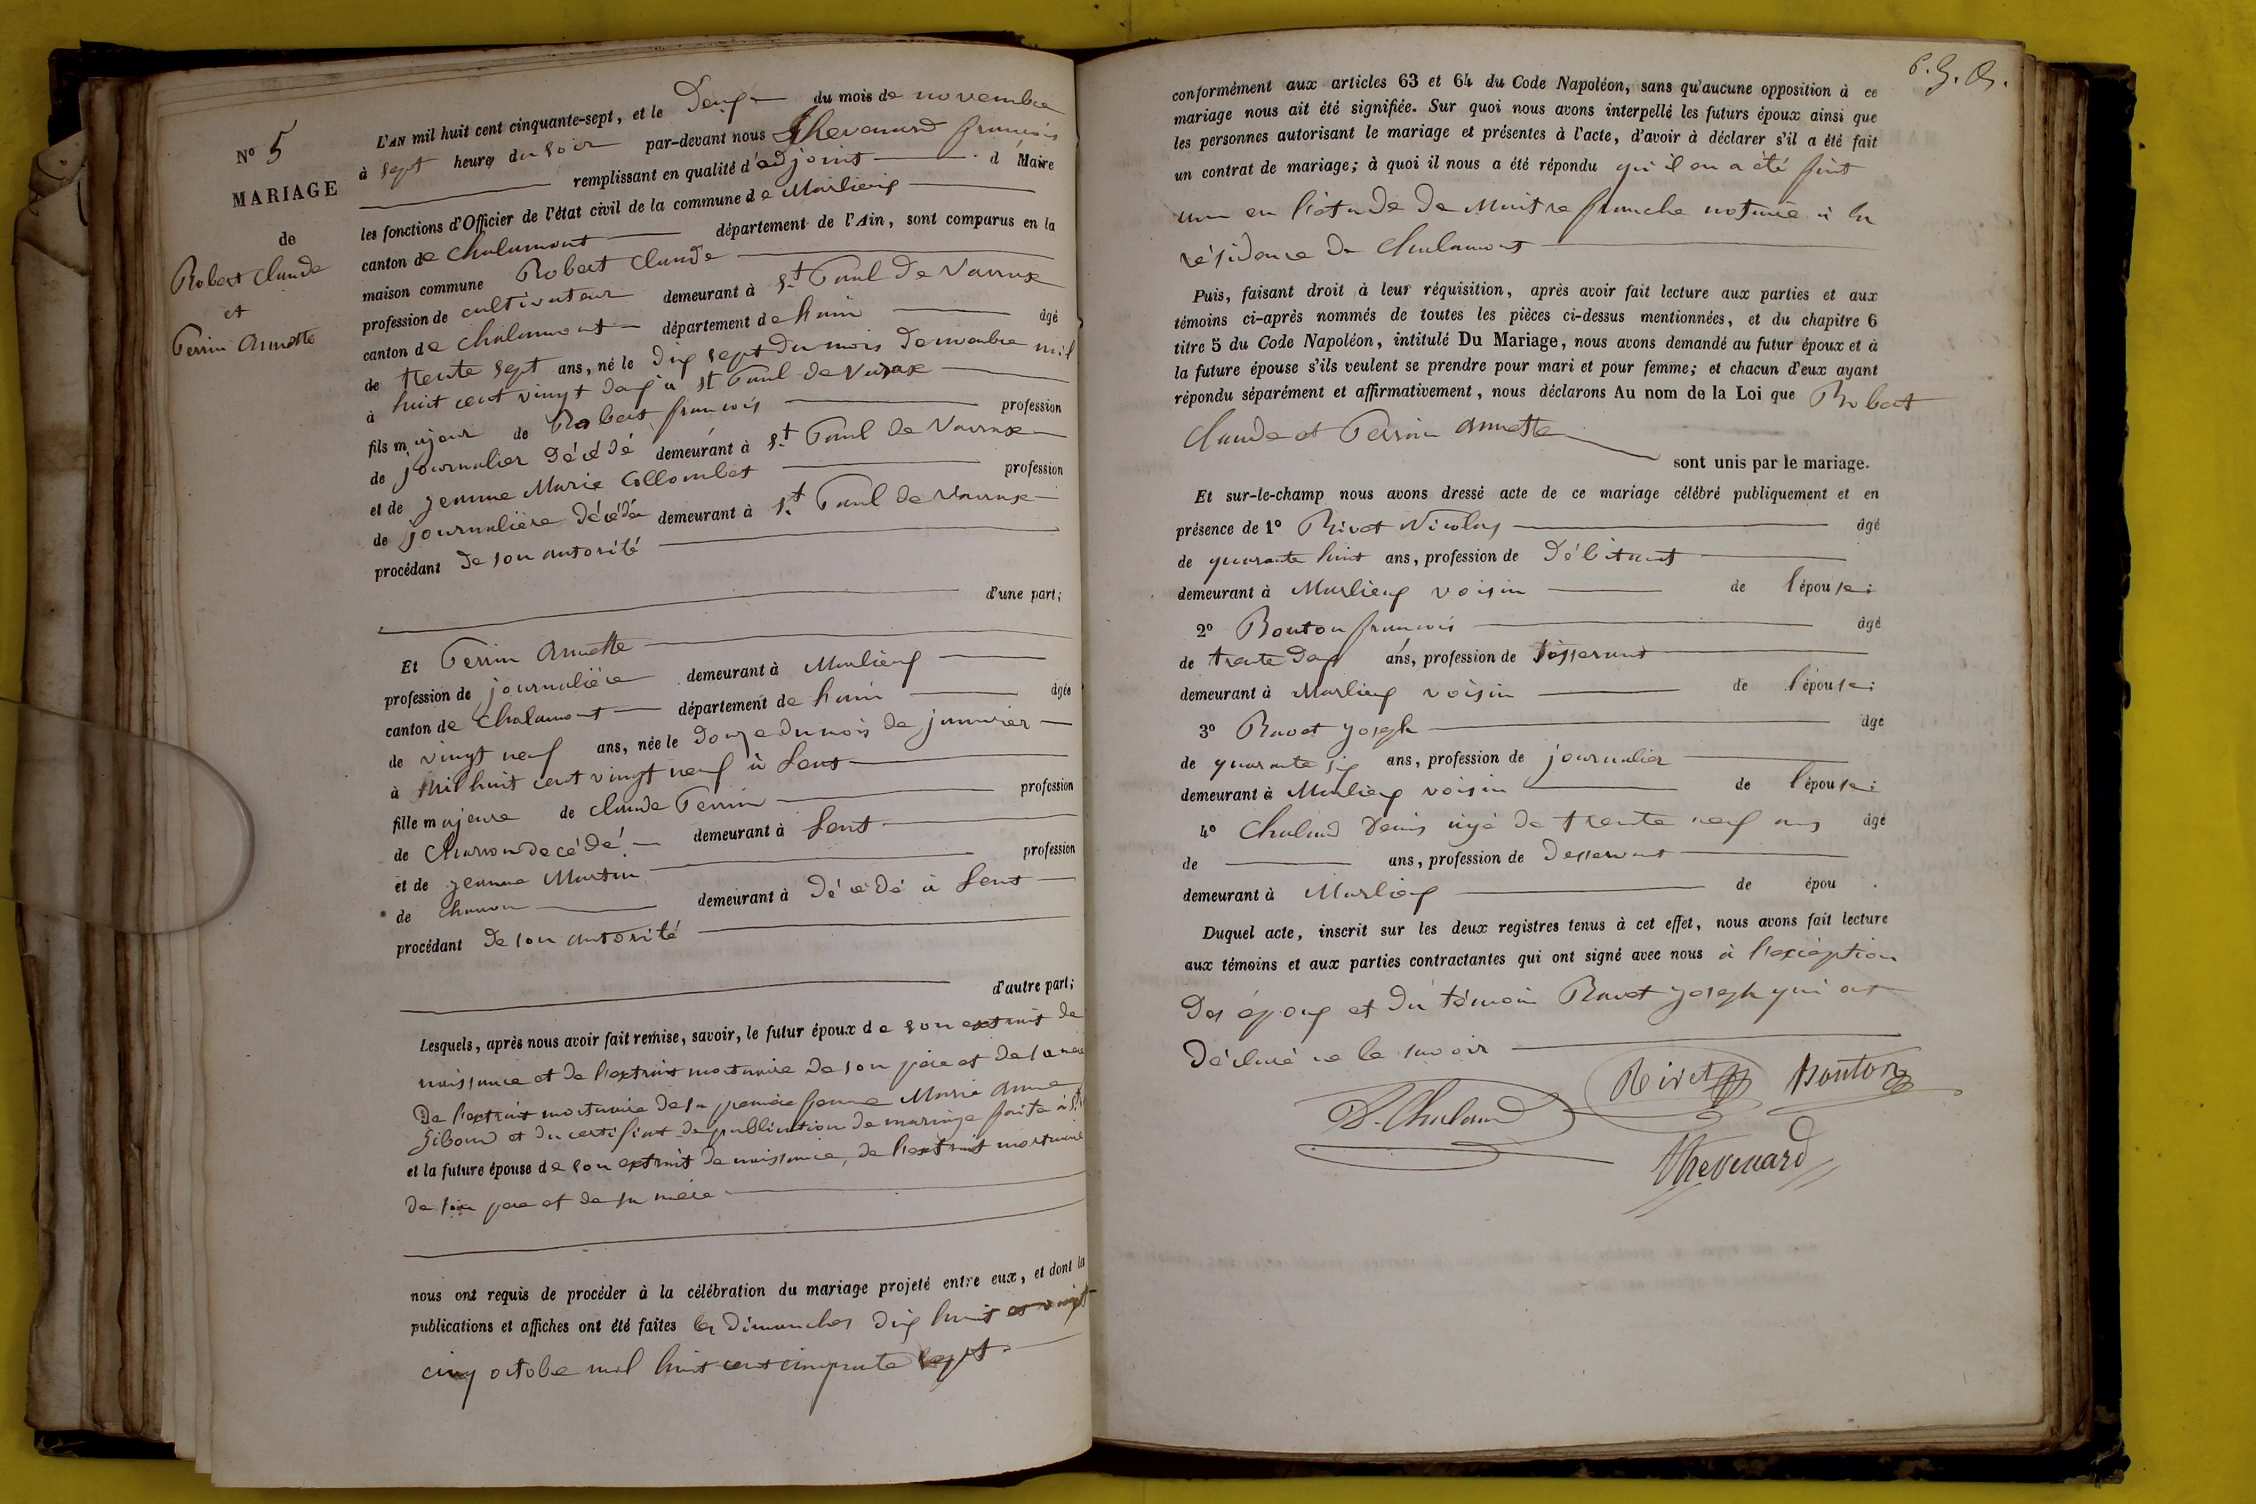 N° 5
MARIAGE
de
Robert Claude
et
Perrin Annette
L'AN mil huit cent cinquante-sept, et le Deux du mois de novembre
à sept heures du soir par-devant nous Thevenard françois
remplissant en qualité d'adjoint d Maire
les fonctions d'Officier de l'état civil de la commune de Marlieux
canton de Chalamont département de l'Ain, sont comparus en la
maison commune Robert Claude
profession de cultivateur demeurant à St Paul de Varrax
canton de Chalamont département de l'ain âgé
de trente sept ans, né le dix sept du mois de novembre mil
à huit cent vingt à St Paul de Varax
fils majeur de Robert françois profession
de journalier décédé demeurant à St Paul de Varrax
et de jeanne Marie Collombet profession
de journalière décédée demeurant à St Paul de Varrax
procédant de son autorité
d'une part;
Et Perrin Annette
profession de journalière demeurant à Marlieux
canton de Chalamont département de l'ain âgée
de vingt neuf ans, née le douze du mois de janvier
à mil huit cent vingt neuf à Lent
fille majeure de Claude Perrin profession
de Charron décédé demeurant à Lent
et de jeanne Martin profession
de charron demeurant à décédé à Lent
procédant de son autorité
d'autre part;
Lesquels, après nous avoir fait remise, savoir, le futur époux de son extrait de
naissance et de l'extrait mortuaire de son père et de sa mère
De l'extrait mortuaire de sa femme Marie Anne
et du certificat de publication de mariage faite à St
et la future épouse de son extrait de naissance, de l'extrait mortuaire
de son père et de sa mère
nous ont requis de procéder à la célébration du mariage projeté entre eux, et dont la
publications et affiches ont été faites les dimanches dix huit et vingt
cinq octobre mil huit cent cinquante sept
conformément aux articles 63 et 64 du Code Napoléon, sans qu'aucune opposition à ce
mariage nous ait été signifiée. Sur quoi nous avons interpellé les futurs époux ainsi que
les personnes autorisant le mariage et présentes à l'acte, d'avoir à déclarer s'il a été fait
un contrat de mariage; à quoi il nous a été répondu qu'il en a été fait
un en l'étude de Maitre franche notaire à la
résidence de Chalamont
Puis, faisant droit à leur réquisition, après avoir fait lecture aux parties et aux
témoins ci-après nommés de toutes les pièces ci-dessus mentionnées, et du chapitre 6
titre 5 du Code Napoléon, intitulé Du Mariage, nous avons demandé au futur époux et à
la future épouse s'ils veulent se prendre pour mari et pour femme; et chacun d'eux ayant
répondu séparément et affirmativement, nous déclarons Au nom de la Loi que Robert
Claude et Perrin Annette
sont unis par le mariage.
Et sur-le-champ nous avons dressé acte de ce mariage célébré publiquement et en
présence de 1° Rivet Nicolas âgé
de quarante huit ans, profession de Débitant
demeurant à Marlieux voisin de l'épouse;
2° Bouton françois âgé
de trente ans, profession de tisserand
demeurant à Marlieux voisin de l'épouse;
3° Ravet joseph âgé
de quarante six ans, profession de journalier
demeurant à Marlieux voisin de l'épouse;
4° Chaland Denis âgé de trente neuf ans âgé
de ans, profession de Desservant
demeurant à Marlieux de épou
Duquel acte, inscrit sur les deux registres tenus à cet effet, nous avons fait lecture
aux témoins et aux parties contractantes qui ont signé avec nous à l'exception
Des époux et du témoin Ravet joseph qui ont
Déclaré ne le savoir
Rivet Bouton
D. Chaland
Thevenard